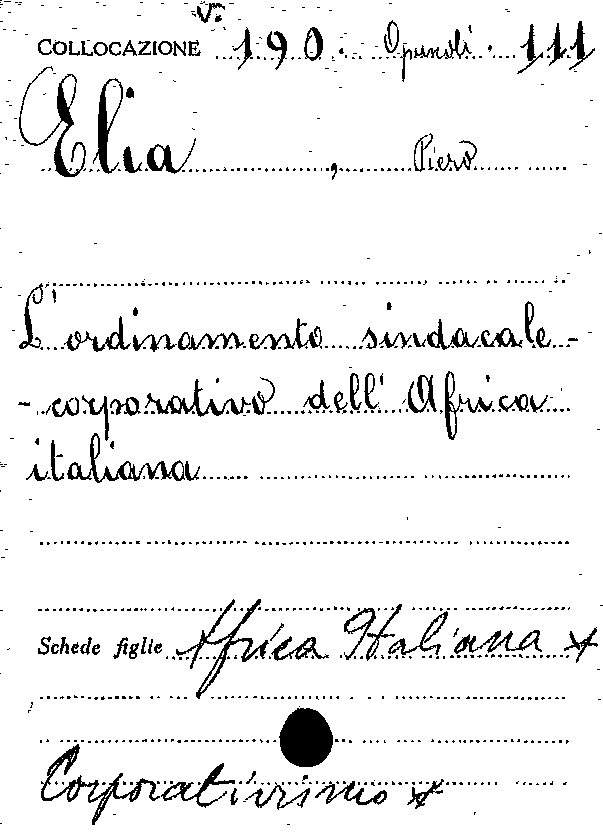 V.
COLLOCAZIONE 190. Opuscoli. 111
Elia, Piero
L'ordinamento sindacale-
-corporativo dell'Africa
italiana
Schede figlie Africa Italiana x
Corporativismo x